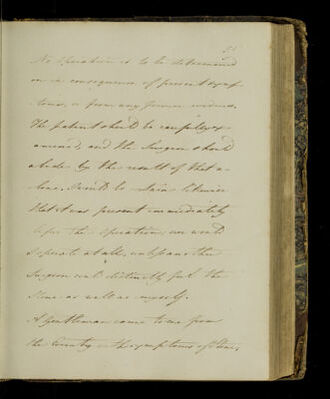 No operation is to be determined
on in consequence of present symp
toms, or from any former evidence.
The patient should be
amined, and the Surgeon should
abide by the result of that a-
lone.
that it was present immediately
before the operation, nor would
I operate at all, unless the
Surgeon could distinctly feel the
Stone as well as myself.
A Gentleman came to me from
the Country with symptoms of Stone,